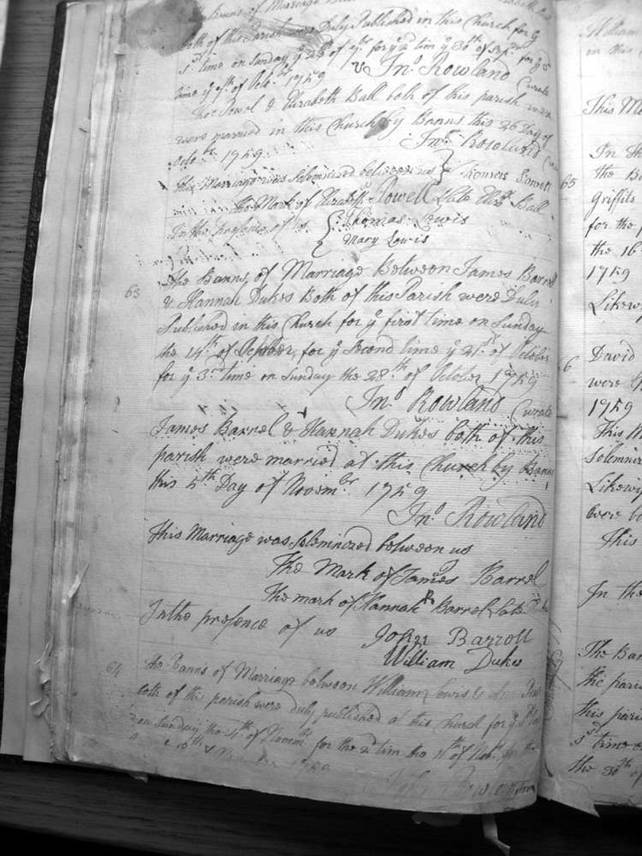 Banns of Marriage
both of this Parish were Duly Published in this Church for ye
1st time on Sunday ye 23d of for ye 2d time ye 30th of for ye 3d
time ye 7th of Octobr 1759 Jno Rowland Curate
Powel & Elizabeth Ball both of this parish were
were married in this Church by Banns this 26 Day of
Octobr 1759 Jno Rowland
This Marriage was Solemnized between us Thomas
The Mark of Elizabeth Powell late Ball
In the presence of us Thomas Lewis
Mary Lewis
63 The Banns of Marriage Between James Barrel
& Hannah Dukes Both of this Parish were Duly
Published in this Church for ye first time on Sunday
the 14th of October, for ye Second time ye 21st of October
for ye 3d time on Sunday the 28th of October 1759
Jno Rowland Curate
James Barrel & Hannah Dukes both of this
parish were married at this Church by Banns
this 4th Day of Novembr 1759
Jno Rowland
This Marriage was solemnized between us
The Mark of James Barrel
The mark of Hannah Barrel late
In the presence of us John Barroll
William Dukes
64 The Banns of Marriage between William Lewis &
both of the parish were duly published at this Church for ye 1st
on Sunday the 4th of Novembr for the 2d time the 11th of Novr for the
1759
William
in the
This Ma
In the
the B
65 Griffits
for the
the 16
1759
Likew
David
were
1759
This M
Solemniz
Likewi
were
This
In the
The Ban
the pari
this pari
1st time o
the 30th